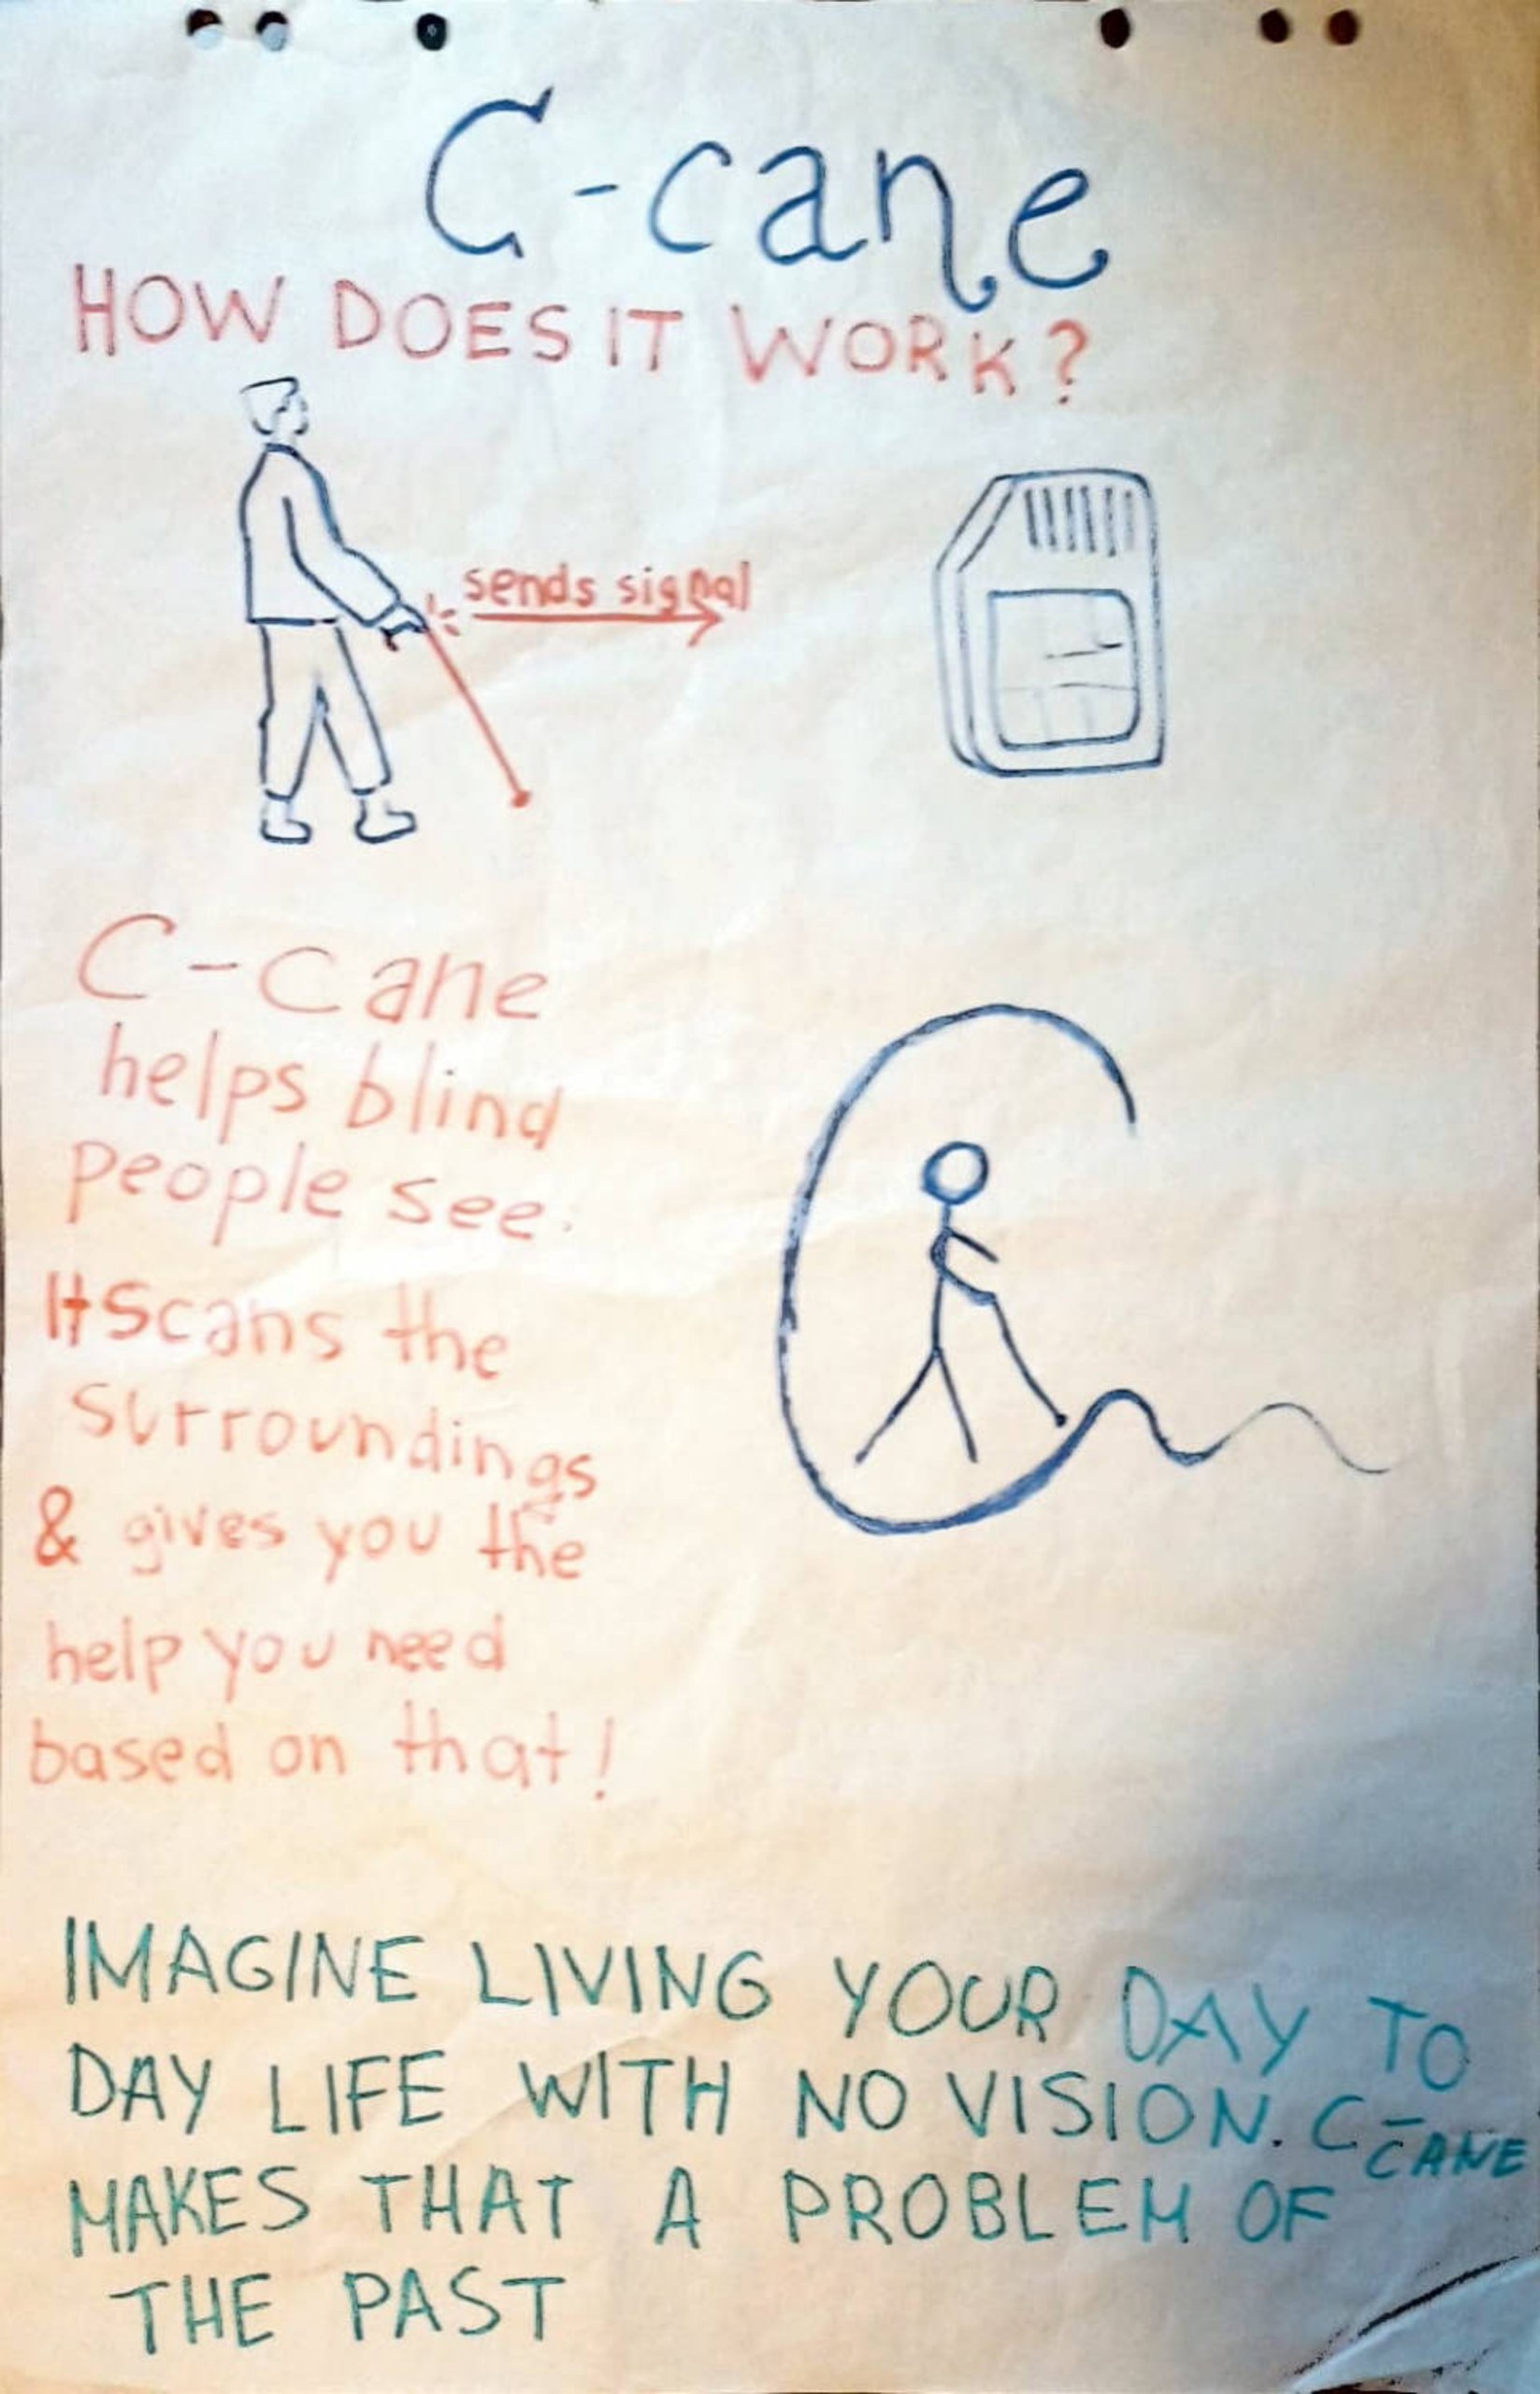 C-cane
HOW DOES IT WORK?
sends signal
C-cane
helps blind
people see.
It scans the
surroundings
& gives you the
help you need
based on that!
IMAGINE LIVING YOUR DAY TO
DAY LIFE WITH NO VISION. C-CANE
MAKES THAT A PROBLEM OF
THE PAST